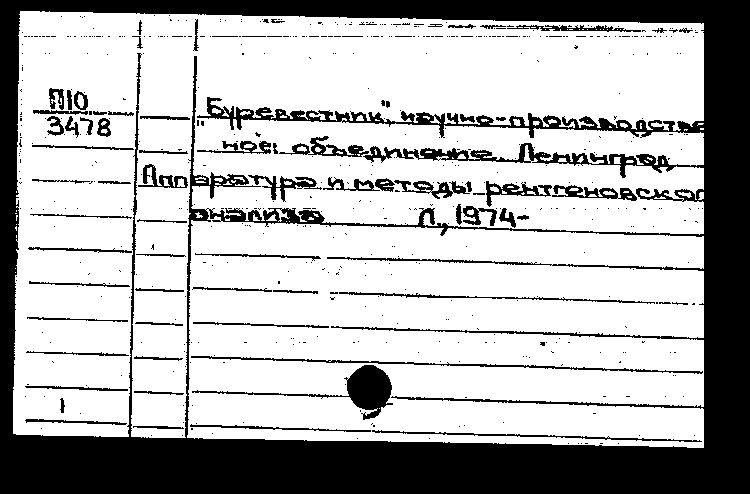 П10
3478
"Буревестник", научно-производстве
ное объединение. Ленинград
Аппаратура и методы рентгеновског
анализа Л., 1974-
1